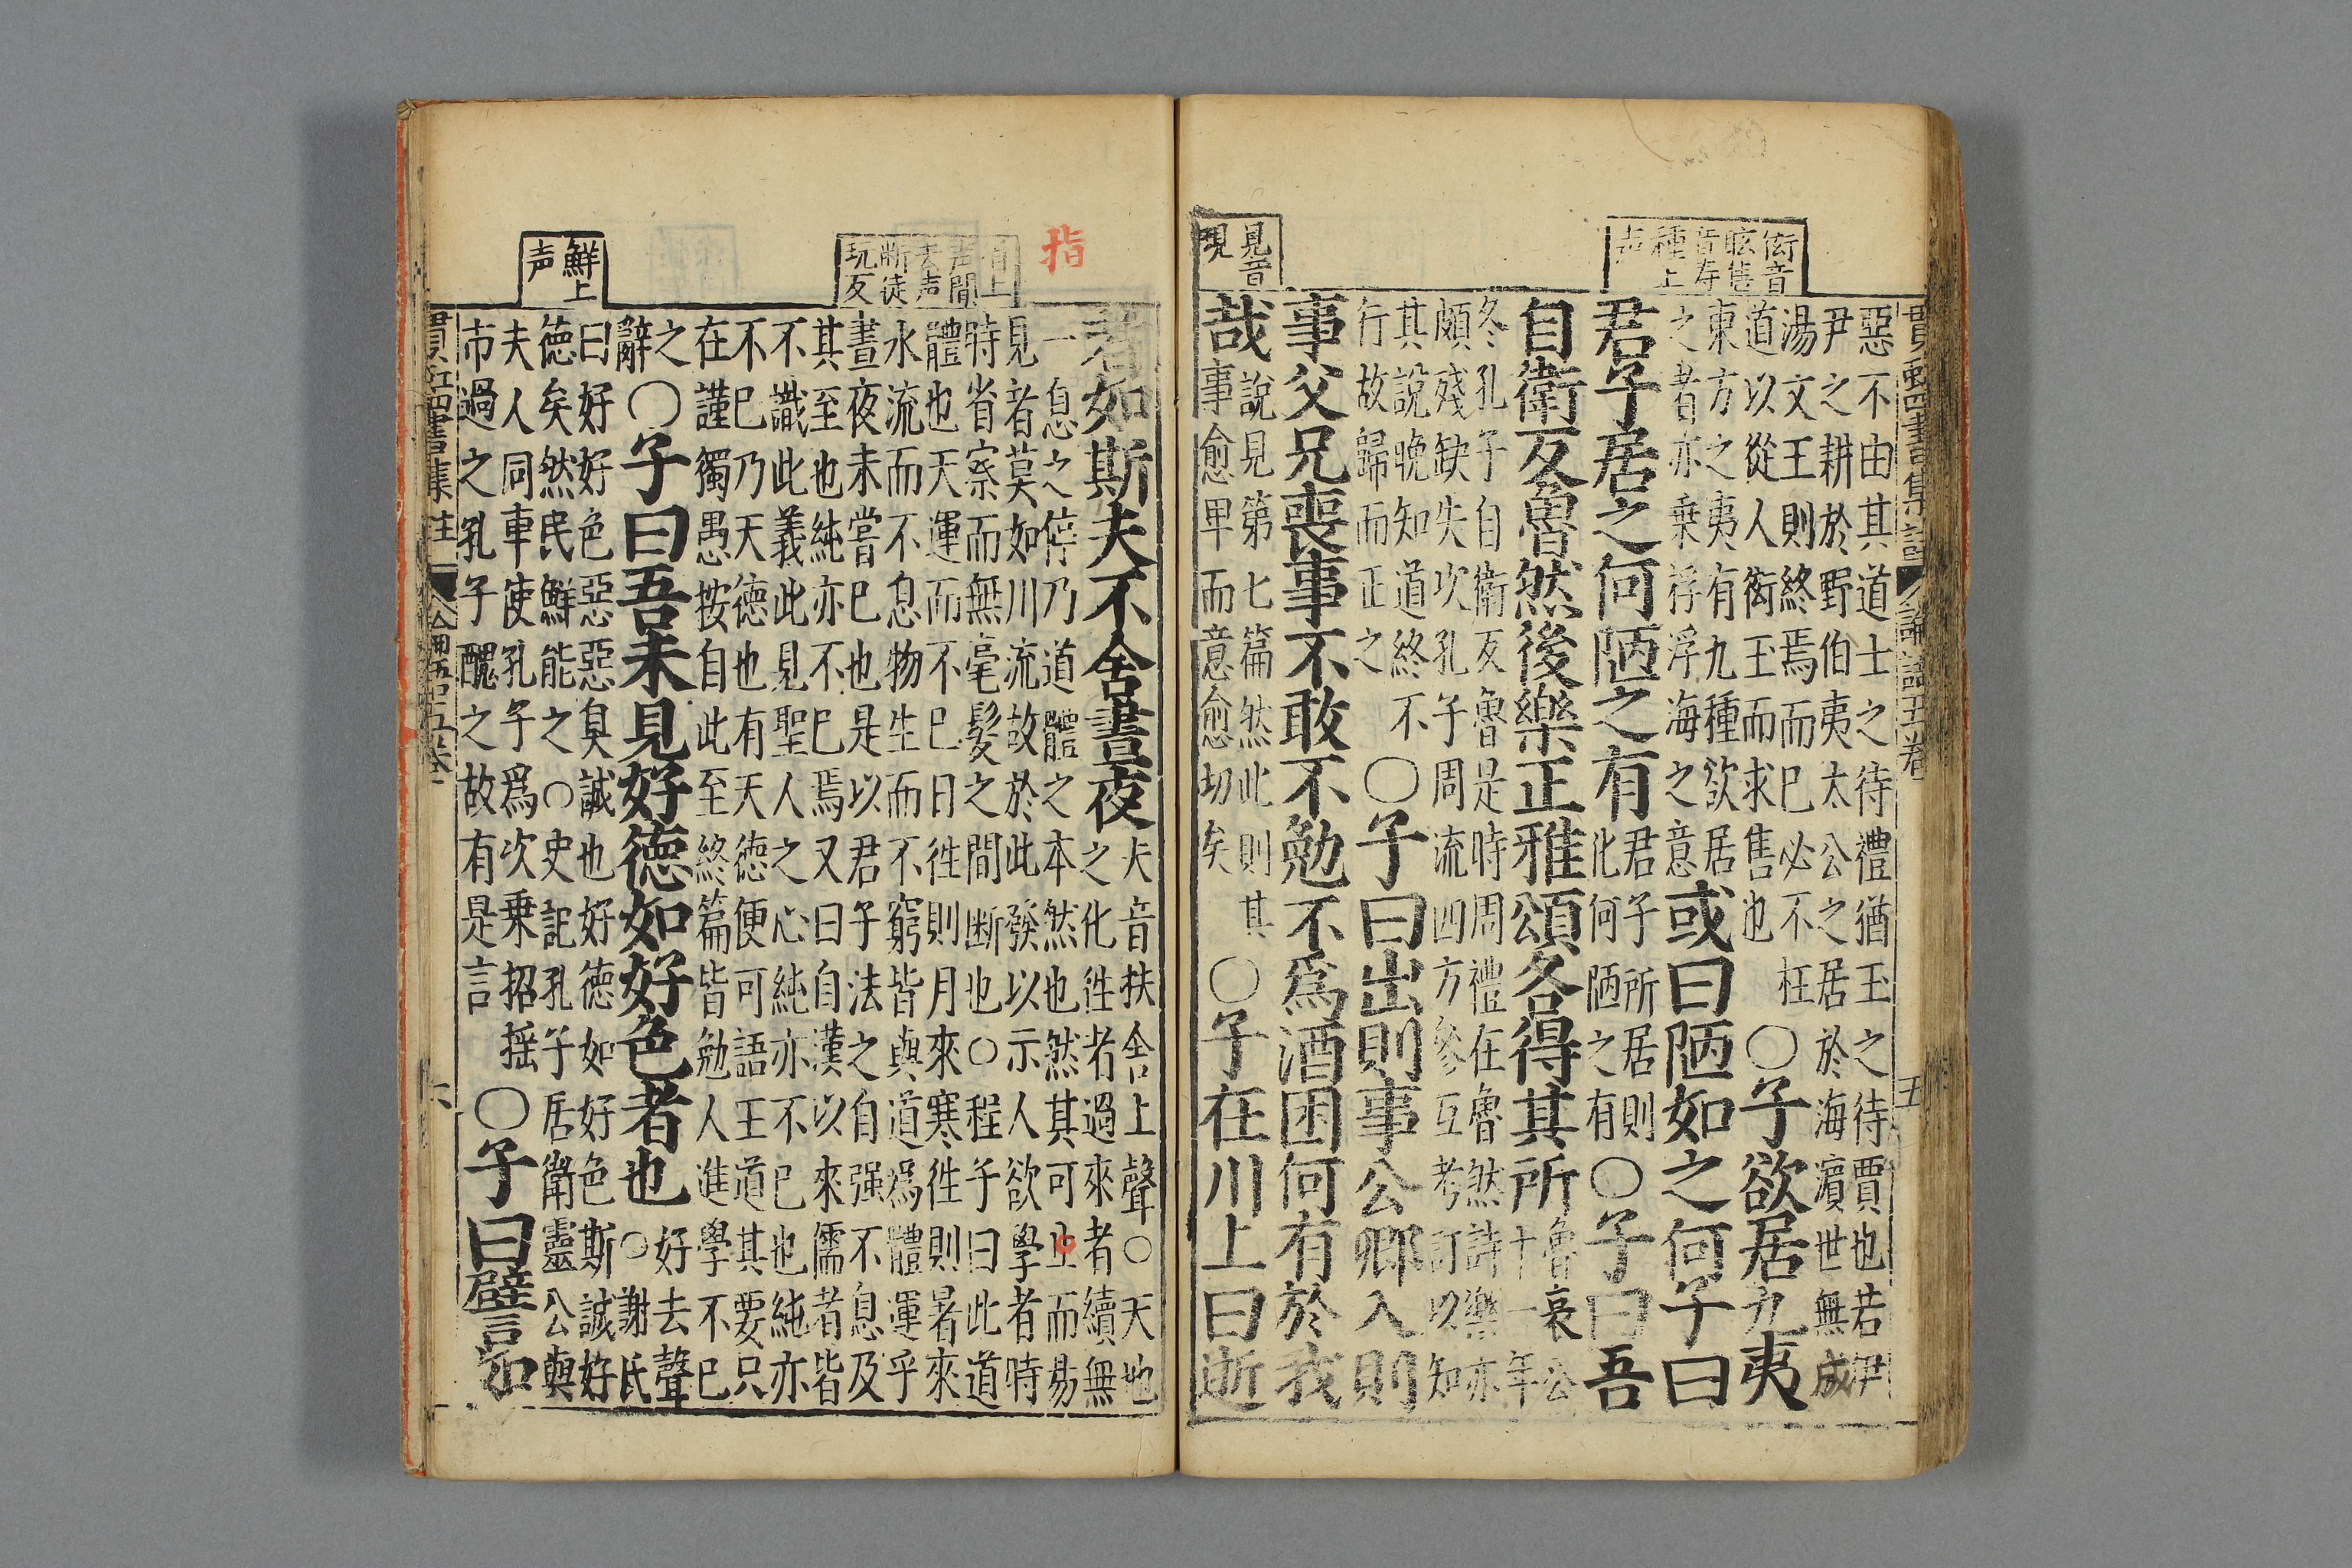 貫虹四書集註 論語五卷 五
衒音
眩售
音寿
種上
声
惡不由其道士之待禮猶玉之待賈也若伊
尹之耕於野伯夷太公之居於海濱世無成
湯文王則終焉而巳必不枉
道以從人衒玉而求售也
○子欲居九夷
東方之夷有九種欲居
之者亦乗桴浮海之意
或曰陋如之何子曰
君子居之何陋之有
君子所居則
化何陋之有
○子曰吾
自衛反魯然後樂正雅頌各得其所
魯哀公
十一年
冬孔子自衛反魯是時周禮在魯然詩樂亦
頗殘缺失次孔子周流四方參互考訂以知
其說晚知道終不
行故歸而正之
○子曰出則事公卿入則
事父兄喪事不敢不勉不爲酒困何有於我
見音
現
哉
說見第七篇然此則其
事愈卑而意愈切矣
○子在川上曰逝
指
者如斯夫不舍晝夜
夫音扶舍上聲○天地
之化徃者過來者續無
一息之停乃道體之本然也然其可而易
見者莫如川流故於此發以示人欲學者時
省上
声間
去声
断徒
玩反
時省察而無毫髮之間断也○程子曰此道
體也天運而不巳日徃則月來寒徃則暑來
水流而不息物生而不窮皆與道爲體運乎
晝夜未嘗巳也是以君子法之自强不息及
其至也純亦不巳焉又曰自漢以來儒者皆
不識此義此見聖人之心純亦不巳也純亦
不巳乃天德也有天德便可語王道其要只
在謹獨愚按自此至終篇皆勉人進學不巳
之
辭
○子曰吾未見好徳如好色者也
好去聲
○謝氏
曰好好色惡惡臭誠也好徳如好色斯誠好
鮮上
声
徳矣然民鮮能之○史記孔子居衛靈公與
夫人同車使孔子爲次乗招揺
市過之孔子醜之故有是言
○子曰譬如
貫虹四書集註 論語五卷 六